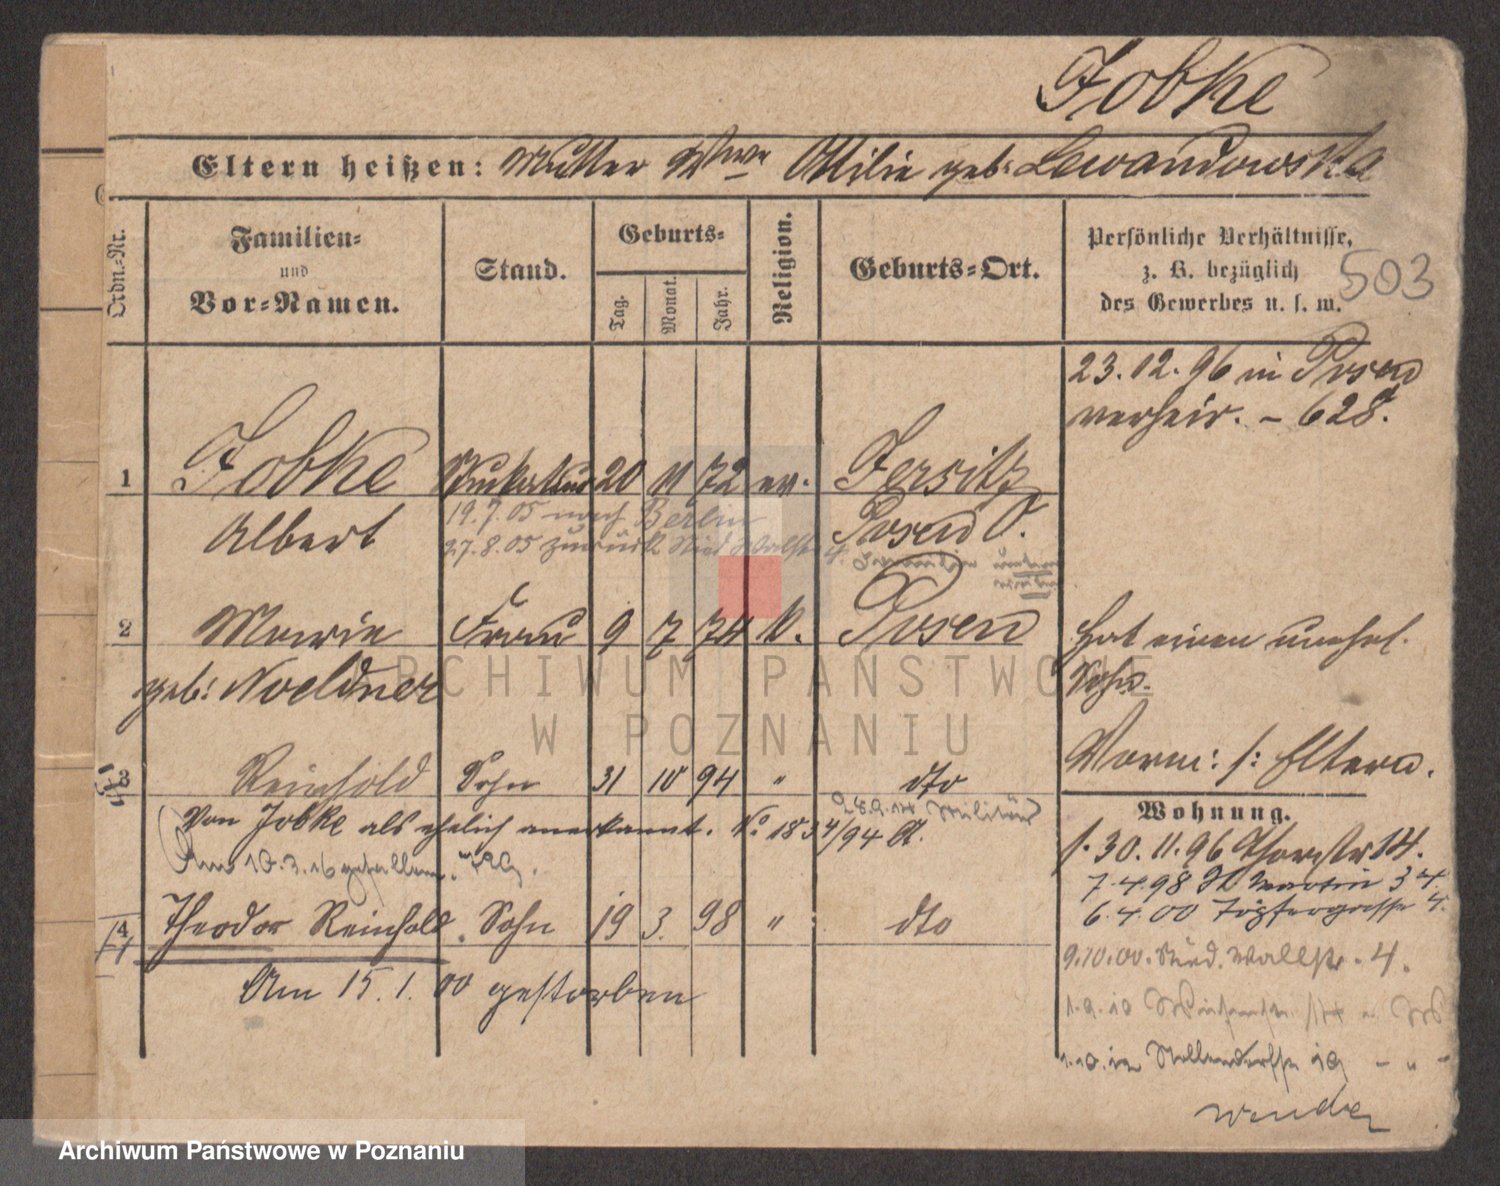 Jobke
Eltern heißen: Mutter Wwe Ottilie geb: Lewandowska
Ordn.-Nr.
Familien-
und
Vor-Namen.
Stand.
Geburts-
Tag.
Monat.
Jahr.
Religion.
Geburts-Ort.
Persönliche Verhältnisse,
z. B. bezüglich
des Gewerbes u. s. w.
503
23.12.96 in Posen
verheir. – 628.
1 Jobke 20 11 72 ev. Jersitz
Albert 19.7.05 nach Berlin Posen O.
27.8.05 zurück Wallstr 4.
2 Marie Frau 9 7 74 k. Posen
geb: Noeldner
Hat einen unehel.
Sohn.
Vorm: s: Eltern.
3 Reinhold Sohn 31 10 94 " dto
Militär
von Jobke als ehelich anerkannt. No 1834/94 A.
Am 10.3.16 gefallen.
4 Theodor Reinhold. Sohn 19 3. 98 " dto
Am 15.1.00 gestorben
Wohnung.
30.11.96 Thorstr 14.
7.4.98 St Martin 34.
6.4.00 Töpfergasse 4.
9.10.00. Wallstr. 4.
wenden
ARCHIWUM PAŃSTWOWE
W POZNANIU
Archiwum Państwowe w Poznaniu